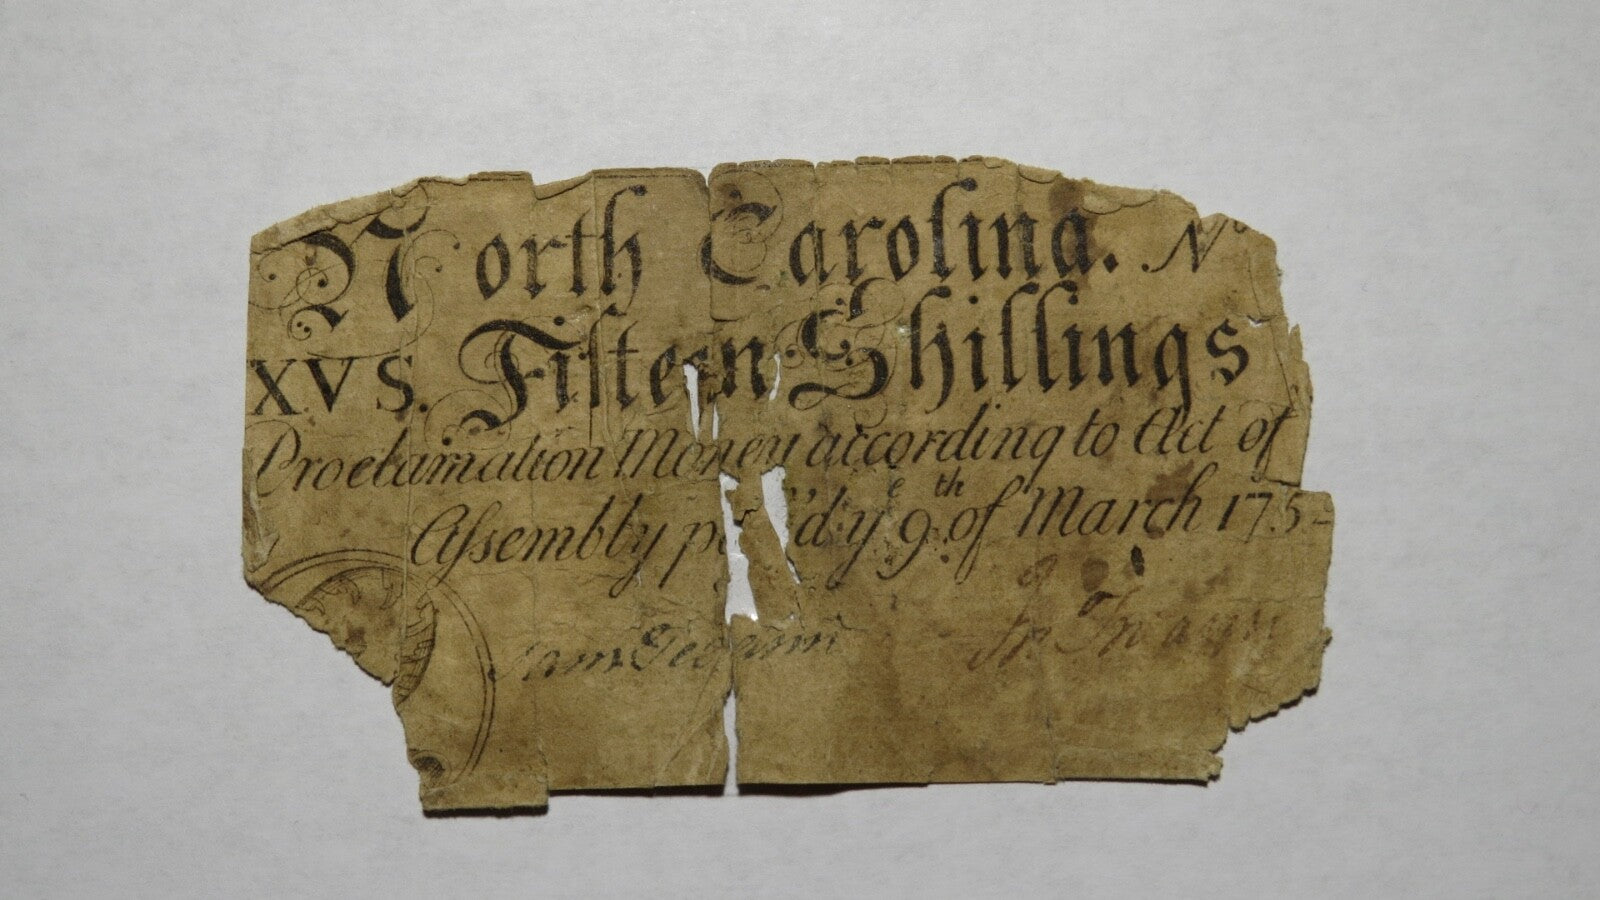 North Carolina. No
XVS. Fifteen Shillings
Proclamation Money according to Act of
Assembly pass'd ye 9th of March 175